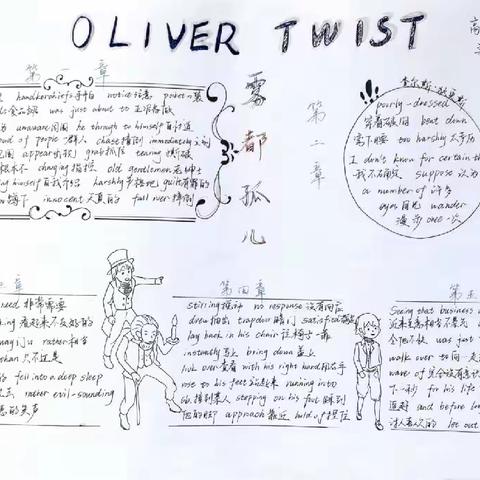 OLIVER TWIST
高
第一章
handkerchiefs手帕 notice注意 pocket口袋
食品 was just about to 正准备做
unaware周围 he though to himself自忖道
crowd of people一群人 chase追 immediately立刻
appear出现 grab抓住 tearing撕破
根本不 changing old gentlemen老绅士
himself自我介绍 harshly严格地 guilt有罪的
innocent天真的 fall over摔倒
雾都孤儿
第二章
查尔斯·狄更斯
poorly-dressed
穿着破旧 bent down
弯下腰 too harshly太严厉
I don't know for certain that
我不确定 suppose认为
a number of 许多
eyes目光 wander
漫步 once一次
章
need 非常需要
king 看起来不友好的
rather相当
than 只不过是
fell into a deep sleep
rather evil-sounding
恶的笑声
第四章
stirring搅动 no response没有回应
drew抽出 trapdoor暗门 satisfied
lay back in his chair 往椅子一靠
instantly马上 bring down 盖上
look over查看 with his right hand用右手
rose to his feet站起来 running into
stepping on his foot 踩到
他的脚 approach靠近 hold of 握住
第五
Seeing that business
was just
walk over to 向一走
wave of
下一秒 for his life
and before long
讨人喜欢的 let out